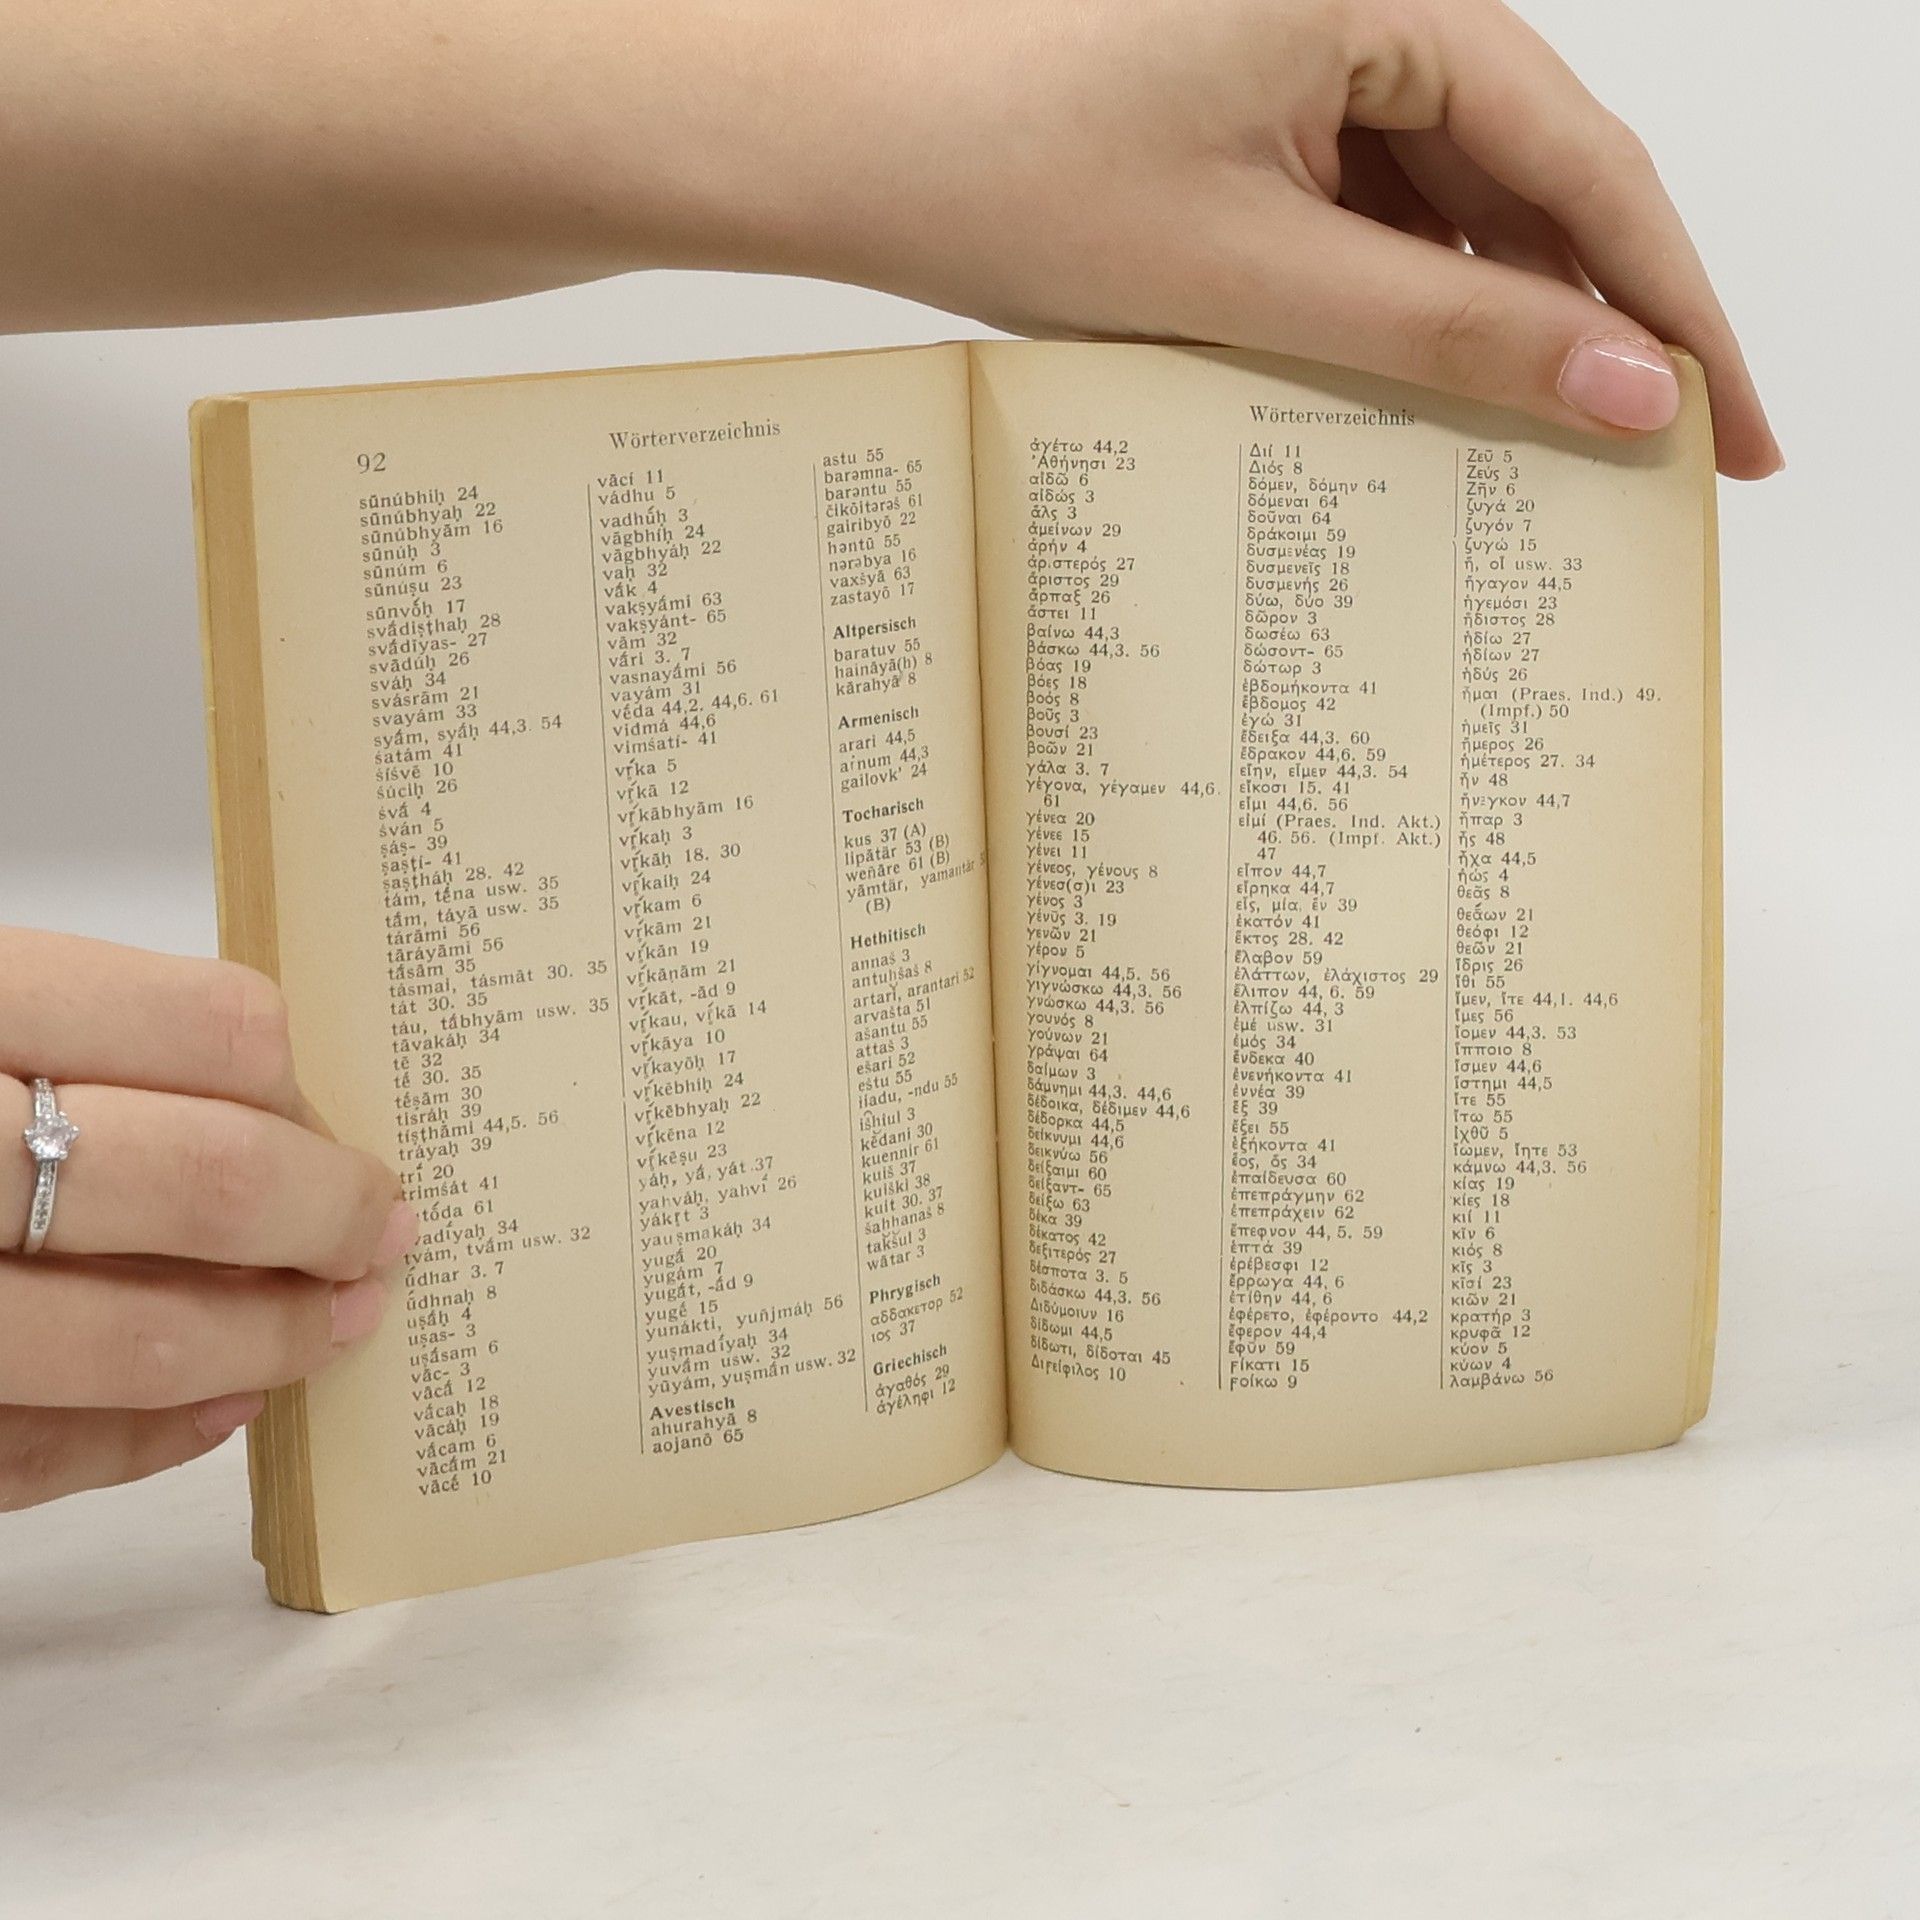 92
Wörterverzeichnis
sūnúbhiḥ 24
sūnúbhyaḥ 22
sūnúbhyām 16
sūnúḥ 3
sūnúm 6
sūnúṣu 23
sūnvṓḥ 17
svā́diṣṭhaḥ 28
svā́dīyas- 27
svādúḥ 26
sváḥ 34
svásrām 21
svayám 33
syā́m, syā́ḥ 44,3. 54
śatám 41
śíśvē 10
śúciḥ 26
śvā́ 4
śván 5
ṣáṣ- 39
ṣaṣṭí- 41
ṣaṣṭháḥ 28. 42
tám, tḗna usw. 35
tā́m, táyā usw. 35
tárāmi 56
tāráyāmi 56
tā́sām 35
tásmai, tásmāt 30. 35
tát 30. 35
táu, tā́bhyām usw. 35
tāvakáḥ 34
tē 32
tḗ 30. 35
tḗṣām 30
tisráḥ 39
tíṣṭhāmi 44,5. 56
tráyaḥ 39
trī́ 20
triṁśát 41
tṓda 61
vadíyaḥ 34
tvám, tvā́m usw. 32
ū́dhar 3. 7
ū́dhnaḥ 8
uṣā́ḥ 4
uṣas- 3
uṣā́sam 6
vāc- 3
vācā́ 12
vā́caḥ 18
vācáḥ 19
vā́cam 6
vācā́m 21
vācḗ 10
vācí 11
vádhu 5
vadhū́ḥ 3
vāgbhíḥ 24
vāgbhyáḥ 22
vaḥ 32
vā́k 4
vakṣyā́mi 63
vakṣyánt- 65
vām 32
vā́ri 3. 7
vasnayā́mi 56
vayám 31
vḗda 44,2. 44,6. 61
vidmá 44,6
viṁśatí- 41
vŕ̥ka 5
vŕ̥kā 12
vŕ̥kābhyām 16
vŕ̥kaḥ 3
vŕ̥kāḥ 18. 30
vŕ̥kaiḥ 24
vŕ̥kam 6
vŕ̥kām 21
vŕ̥kān 19
vŕ̥kāṇām 21
vŕ̥kāt, -ād 9
vŕ̥kau, vŕ̥kā 14
vŕ̥kāya 10
vŕ̥kayōḥ 17
vŕ̥kēbhiḥ 24
vŕ̥kēbhyaḥ 22
vŕ̥kēna 12
vŕ̥kēṣu 23
yáḥ, yā́, yát 37
yahváḥ, yahvī́ 26
yákr̥t 3
yauṣmakáḥ 34
yugā́ 20
yugám 7
yugā́t, -ā́d 9
yugḗ 15
yunákti, yuñjmáḥ 56
yuṣmadíyaḥ 34
yuvā́m usw. 32
yūyám, yuṣmā́n usw. 32
Avestisch
ahurahyā 8
aojanō 65
astu 55
barəmna- 65
barəntu 55
čikōitərəš 61
gairibyō 22
həntū 55
nərəbya 16
vaxšyā 63
zastayō 17
Altpersisch
baratuv 55
haināyā(h) 8
kārahyā 8
Armenisch
arari 44,5
aṙnum 44,3
gailovk‘ 24
Tocharisch
kus 37 (A)
lipātär 53 (B)
weñāre 61 (B)
yāmtär, yamantär
(B)
Hethitisch
annaš 3
antuḫšaš 8
artari, arantari 52
arvašta 51
ašantu 55
attaš 3
ešari 52
eštu 55
iiadu, -ndu 55
išḫiul 3
kēdani 30
kuennir 61
kuiš 37
kuiški 38
kuit 30. 37
šaḫḫanaš 8
takšul 3
wātar 3
Phrygisch
αδδακετορ 52
ιος 37
Griechisch
ἀγαθός 29
ἀγέληφι 12
Wörterverzeichnis
ἀγέτω 44,2
Ἀθήνησι 23
αἰδῶ 6
αἰδώς 3
ἅλς 3
ἀμείνων 29
ἀρήν 4
ἀριστερός 27
ἄριστος 29
ἅρπαξ 26
ἄστει 11
βαίνω 44,3
βάσκω 44,3. 56
βόας 19
βόες 18
βοός 8
βοῦς 3
βουσί 23
βοῶν 21
γάλα 3. 7
γέγονα, γέγαμεν 44,6.
61
γένεα 20
γένεε 15
γένει 11
γένεος, γένους 8
γένεσ(σ)ι 23
γένος 3
γένῡς 3. 19
γενῶν 21
γέρον 5
γίγνομαι 44,5. 56
γιγνώσκω 44,3. 56
γνώσκω 44,3. 56
γουνός 8
γούνων 21
γράψαι 64
δαίμων 3
δάμνημι 44,3. 44,6
δέδοικα, δέδιμεν 44,6
δέδορκα 44,5
δείκνυμι 44,6
δεικνύω 56
δείξαιμι 60
δείξαντ- 65
δείξω 63
δέκα 39
δέκατος 42
δεξιτερός 27
δέσποτα 3. 5
διδάσκω 44,3. 56
Διδύμοιυν 16
δίδωμι 44,5
δίδωτι, δίδοται 45
Διϝείφιλος 10
Διί 11
Διός 8
δόμεν, δόμην 64
δόμεναι 64
δοῦναι 64
δράκοιμι 59
δυσμενέας 19
δυσμενεῖς 18
δυσμενής 26
δύω, δύο 39
δῶρον 3
δωσέω 63
δώσοντ- 65
δώτωρ 3
ἑβδομήκοντα 41
ἕβδομος 42
ἐγώ 31
ἔδειξα 44,3. 60
ἔδρακον 44,6. 59
εἴην, εἶμεν 44,3. 54
εἴκοσι 15. 41
εἶμι 44,6. 56
εἰμί (Praes. Ind. Akt.)
46. 56. (Impf. Akt.)
47
εἶπον 44,7
εἴρηκα 44,7
εἷς, μία, ἕν 39
ἑκατόν 41
ἕκτος 28. 42
ἔλαβον 59
ἐλάττων, ἐλάχιστος 29
ἔλιπον 44, 6. 59
ἐλπίζω 44, 3
ἐμέ usw. 31
ἐμός 34
ἕνδεκα 40
ἐνενήκοντα 41
ἐννέα 39
ἕξ 39
ἕξει 55
ἑξήκοντα 41
ἑος, ὅς 34
ἐπαίδευσα 60
ἐπεπράγμην 62
ἐπεπράχειν 62
ἔπεφνον 44, 5. 59
ἑπτά 39
ἐρέβεσφι 12
ἔρρωγα 44, 6
ἐτίθην 44, 6
ἐφέρετο, ἐφέροντο 44,2
ἔφερον 44,4
ἔφῡν 59
ϝίκατι 15
ϝοίκω 9
Ζεῦ 5
Ζεύς 3
Ζῆν 6
ζυγά 20
ζυγόν 7
ζυγώ 15
ἥ, οἵ usw. 33
ἤγαγον 44,5
ἡγεμόσι 23
ἥδιστος 28
ἡδίω 27
ἡδίων 27
ἡδύς 26
ἧμαι (Praes. Ind.) 49.
(Impf.) 50
ἡμεῖς 31
ἥμερος 26
ἡμέτερος 27. 34
ἦν 48
ἤνεγκον 44,7
ἧπαρ 3
ἦς 48
ἦχα 44,5
ἠώς 4
θεᾶς 8
θεᾱ́ων 21
θεόφι 12
θεῶν 21
ἴδρις 26
ἴθι 55
ἴμεν, ἴτε 44,1. 44,6
ἴμες 56
ἴομεν 44,3. 53
ἵπποιο 8
ἴσμεν 44,6
ἵστημι 44,5
ἴτε 55
ἴτω 55
ἰχθῦ 5
ἴωμεν, ἴητε 53
κάμνω 44,3. 56
κίας 19
κίες 18
κιί 11
κῖν 6
κιός 8
κῖς 3
κῑσί 23
κιῶν 21
κρατήρ 3
κρυφᾶ 12
κύον 5
κύων 4
λαμβάνω 56